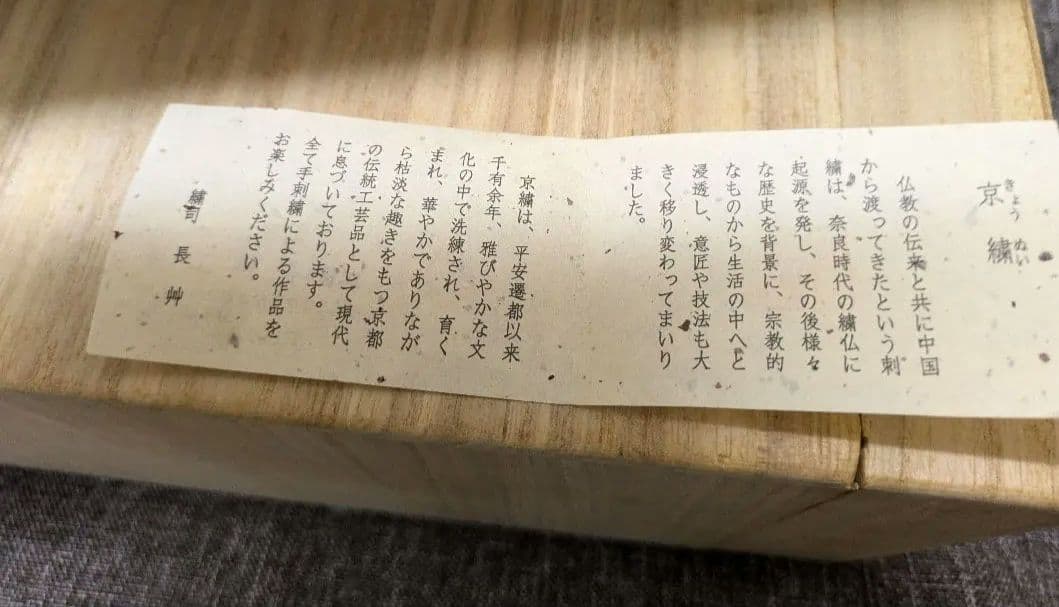 京繡
きょう ぬい
仏教の伝来と共に中国
から渡ってきたという刺
繡は、奈良時代の繡仏に
起源を発し、その後様々
な歴史を背景に、宗教的
なものから生活の中へと
浸透し、意匠や技法も大
きく移り変わってまいり
ました。
京繡は、平安遷都以来
千有余年、雅びやかな文
化の中で洗練され、育く
まれ、華やかでありなが
ら枯淡な趣きをもつ京都
の伝統工芸品として現代
に息づいております。
全て手刺繡による作品を
お楽しみください。
繡司 長艸